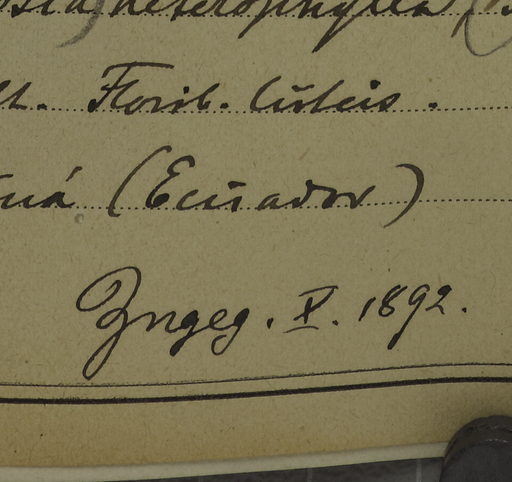 heterophylla
Florib. luteis.
(Ecuador)
Zngeg. X. 1892.